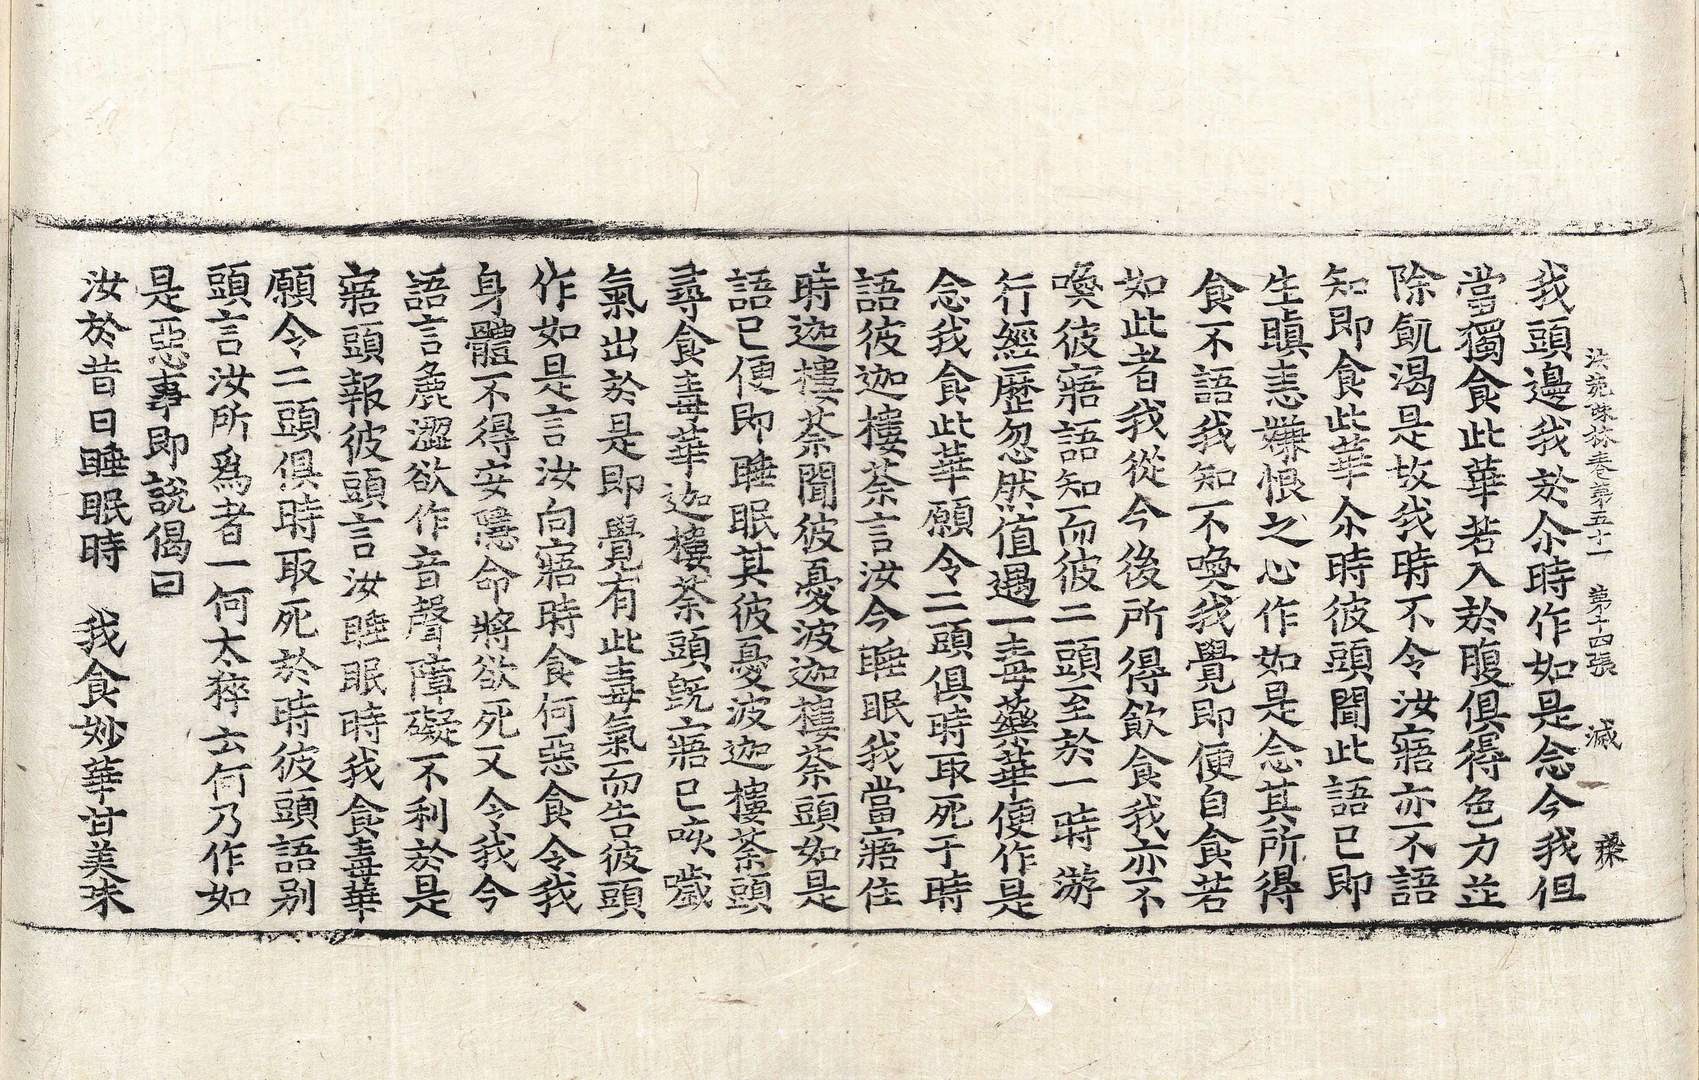 法苑珠林卷第五十一　第十四張　滅
我頭邊我於尒時作如是念今我但
當獨食此華若入於腹俱得色力並
除飢渴是故我時不令汝寤亦不語
知即食此華尒時彼頭聞此語已即
生瞋恚嫌恨之心作如是念其所得
食不語我知不喚我覺即便自食若
如此者我從今後所得飲食我亦不
喚彼寤語知而彼二頭至於一時游
行經歷忽然值遇一毒藥華便作是
念我食此華願令二頭俱時取死于時
語彼迦樓荼言汝今睡眠我當寤住
時迦樓荼聞彼憂波迦樓荼頭如是
語已便即睡眠其彼憂波迦樓荼頭
尋食毒華迦樓荼頭既寤已咳噦
氣出於是即覺有此毒氣而告彼頭
作如是言汝向寤時食何惡食令我
身體不得安隱命將欲死又令我今
語言麁澀欲作音聲障礙不利於是
寤頭報彼頭言汝睡眠時我食毒華
願令二頭俱時取死於時彼頭語別
頭言汝所爲者一何太猝云何乃作如
是惡事即說偈曰
汝於昔日睡眠時　我食妙華甘美味